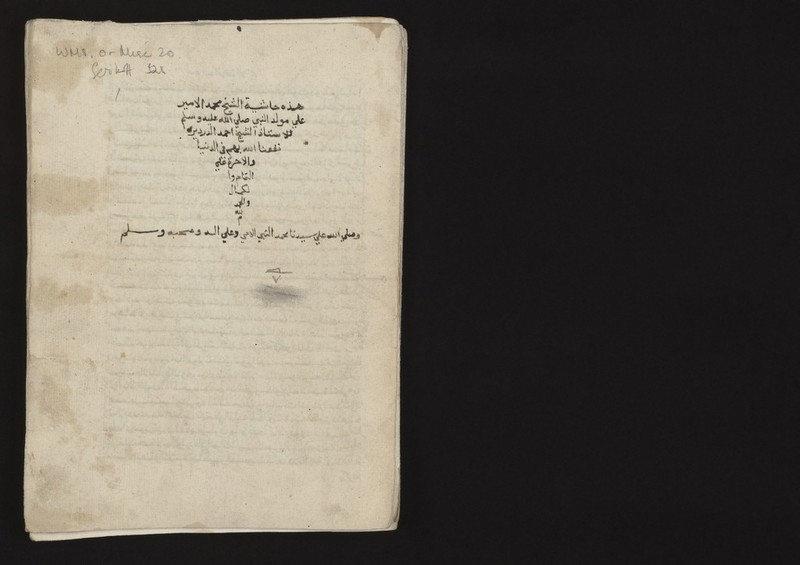 WMS. Or. Misc 20
هذه حاشية الشيخ محمد الامير
علي مولد النبي صلي الله عليه وسلم
للاستاذ الشيخ احمد الدردير
نفعنا الله بهم في الدنيا
والاخرة علي
التمام وا
لكمال
والحمد
لله
م
وصلي الله علي سيدنا محمد النبي الامي وعلي اله وصحبه وسلم